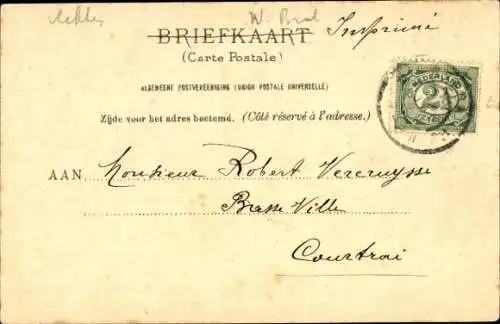 W. Brab
BRIEFKAART Imprimé
(Carte Postale)
ALGEMEENE POSTVEREENIGING (UNION POSTALE UNIVERSELLE)
NEDERLAND
2½
Zijde voor het adres bestemd. (Côté réservé à l'adresse.)
AAN Monsieur Robert Vercruysse
Basse Ville
Courtrai